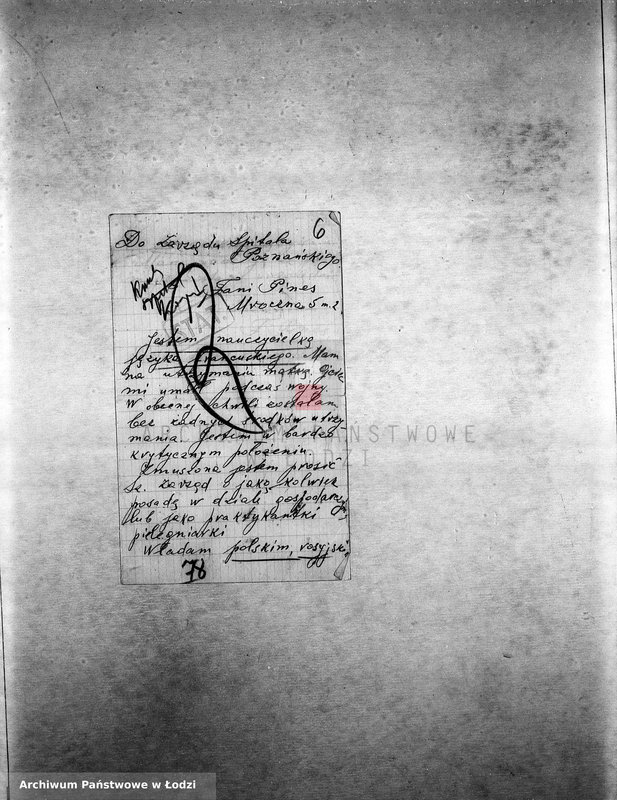 6
Do Zarządu Szpitala
Poznańskiego.
Fani Pines
Mroczna 5 m. 2
Jestem nauczycielką
języka francuskiego. Mam
na utrzymaniu matkę. Ojciec
mi umarł podczas wojny.
W obecnej chwili zostałam
bez żadnych środków utrzy
mania. Jestem w bardzo
krytycznym położeniu
Zmuszona jestem prosić
Sz. Zarząd o jaką kolwiek
posadę w dziale gospodarczym
lub jako praktykantki
pielęgniarki
Władam polskim, rosyjskim
78
ARCHIWUM PAŃSTWOWE
W ŁODZI
Archiwum Państwowe w Łodzi